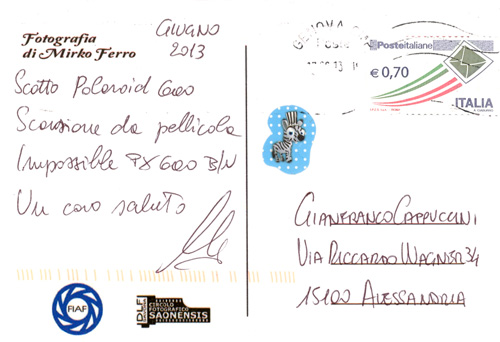 Fotografia
di Mirko Ferro
GIUGNO
2013
Scatto Polaroid 600
Scansione da pellicola
Impossible PX 600 B/N
Un caro saluto
GENOVA
Posteitaliane
€ 0,70
ITALIA
GIANFRANCO CAPPUCCINI
VIA RICCARDO WAGNER 34
15100 ALESSANDRIA
FIAF
DLF
CIRCOLO
FOTOGRAFICO
SAONENSIS